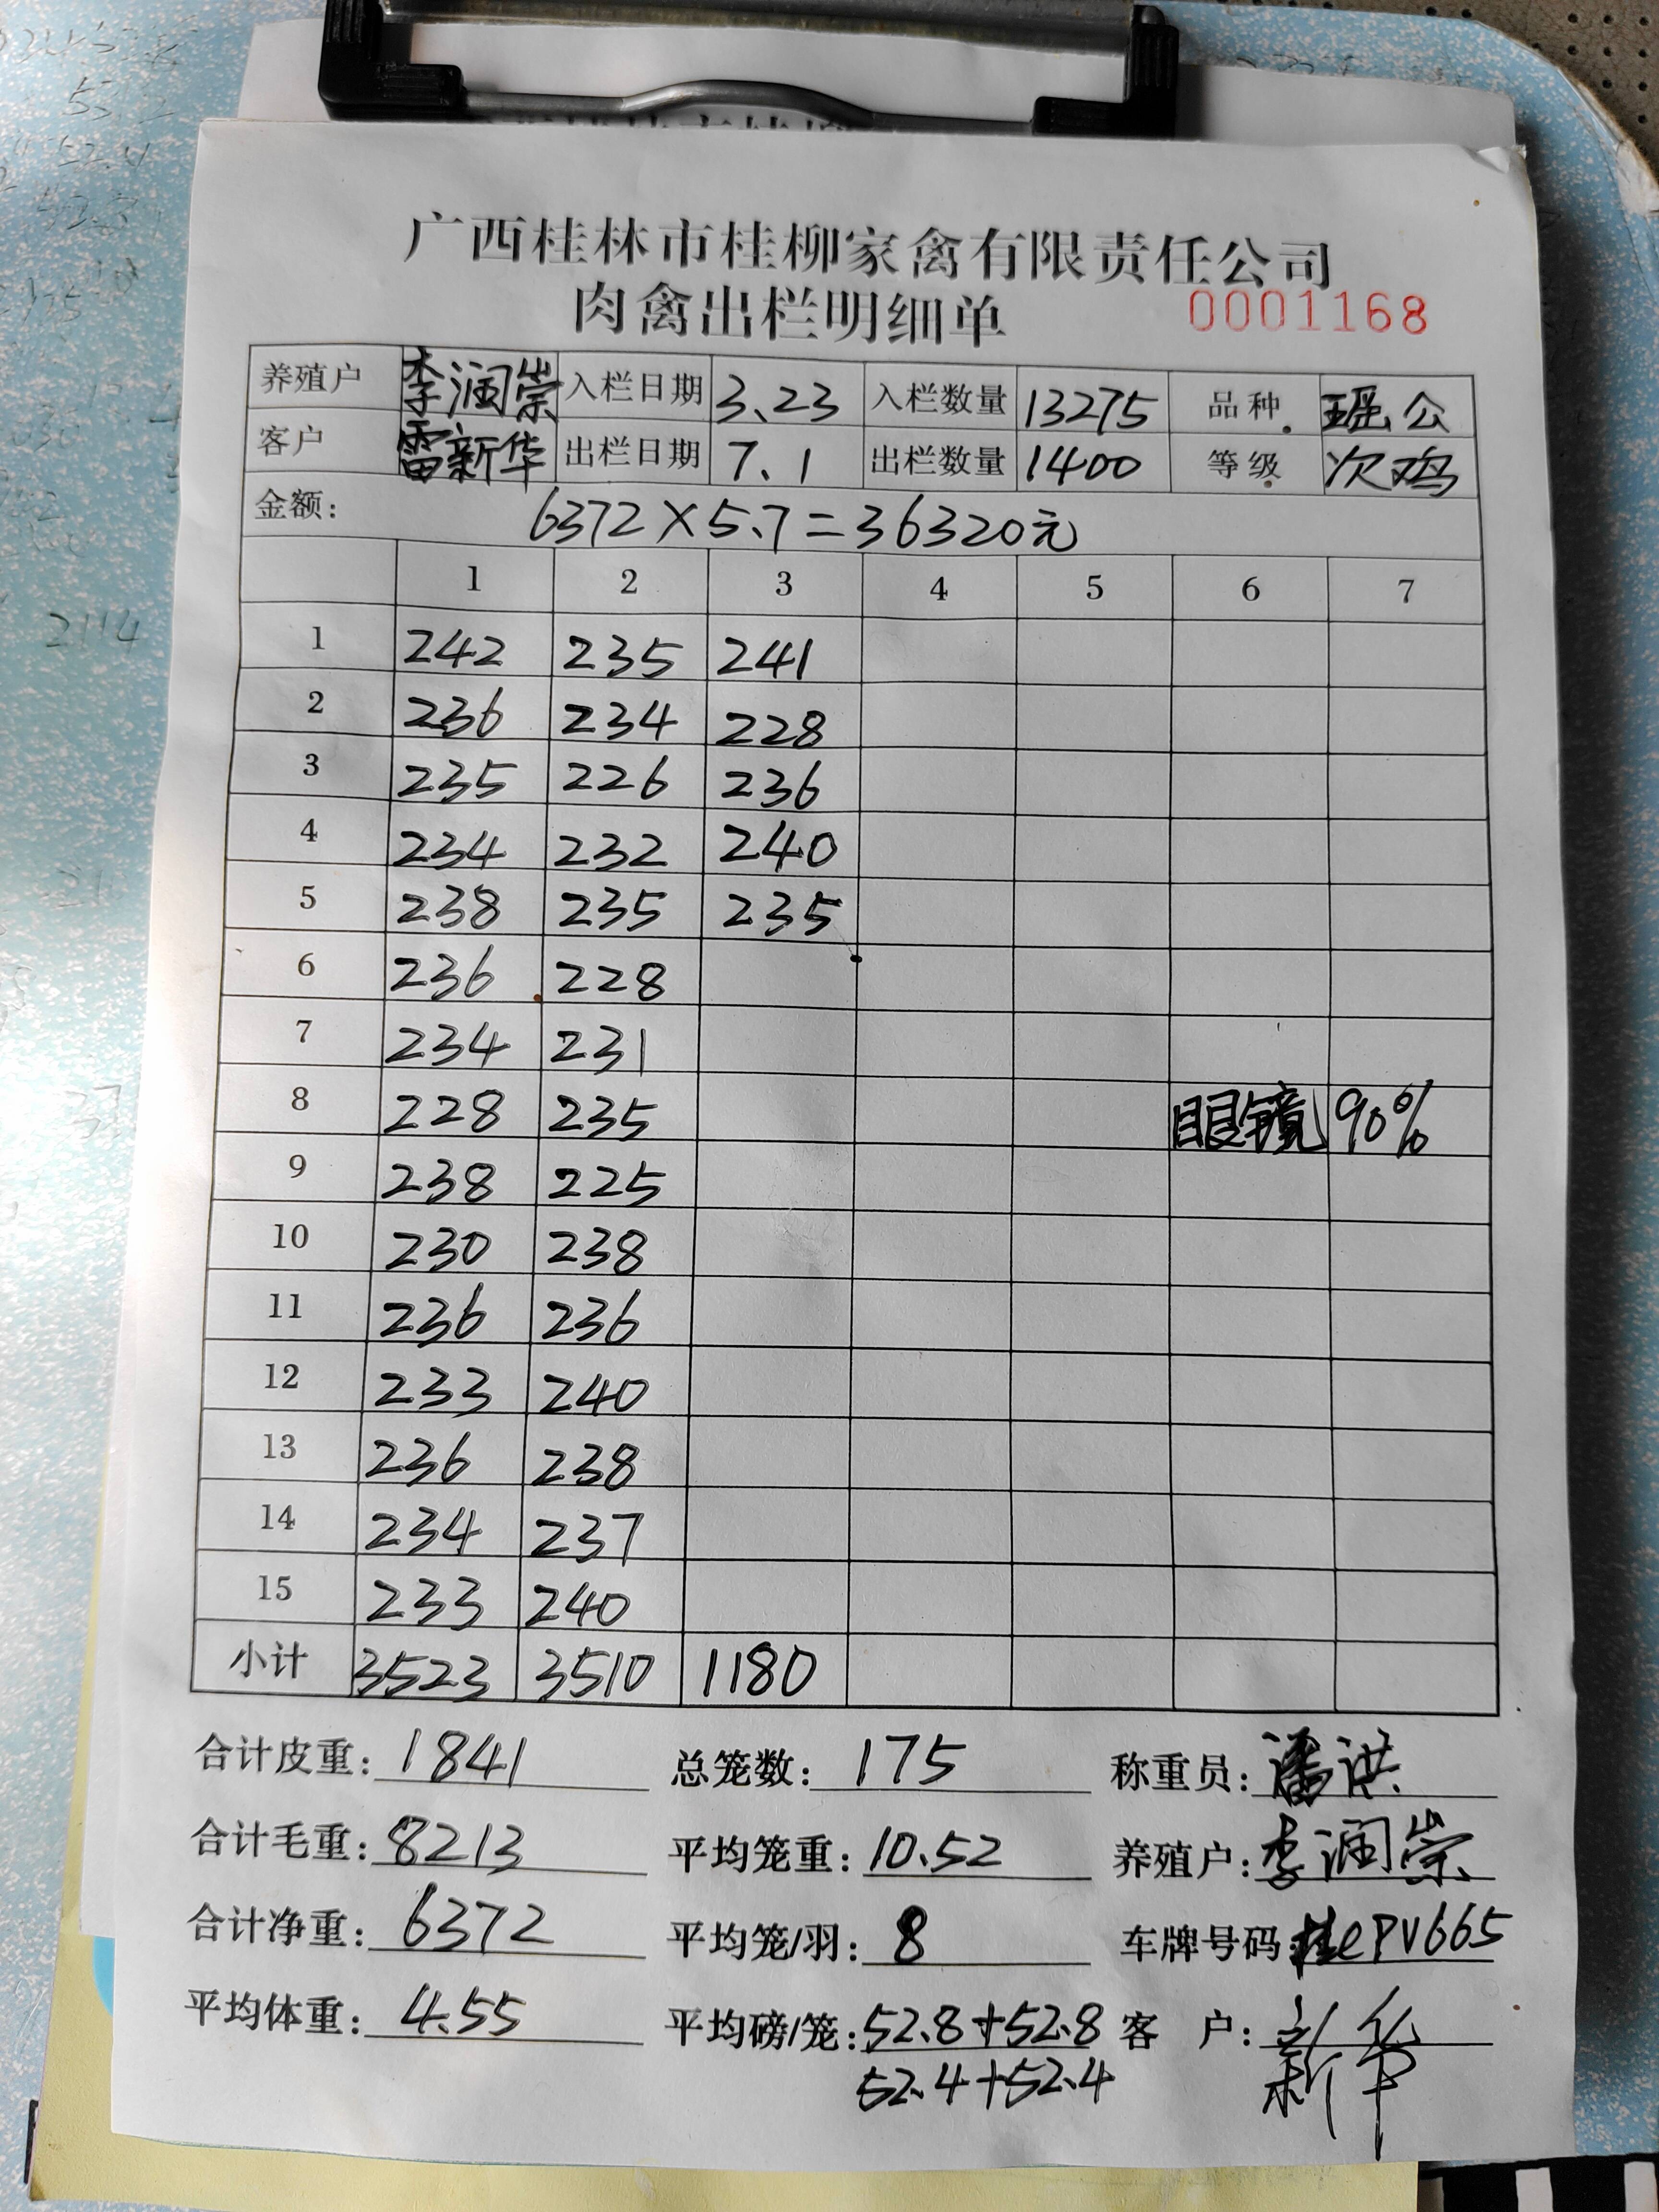 广西桂林市桂柳家禽有限责任公司
肉禽出栏明细单 0001168
养殖户 李润崇 入栏日期 3.23 入栏数量 13275 品种 瑶公
客户 雷新华 出栏日期 7.1 出栏数量 1400 等级 次鸡
金额: 6372×5.7=36320元
1 2 3 4 5 6 7
1 242 235 241
2 236 234 228
3 235 226 236
4 234 232 240
5 238 235 235
6 236 228
7 234 231
8 228 235 眼镜 90%
9 238 225
10 230 238
11 236 236
12 233 240
13 236 238
14 234 237
15 233 240
小计 3523 3510 1180
合计皮重: 1841 总笼数: 175 称重员: 潘洪
合计毛重: 8213 平均笼重: 10.52 养殖户: 李润崇
合计净重: 6372 平均笼/羽: 8 车牌号码: PV665
平均体重: 4.55 平均磅/笼: 52.8+52.8 客 户: 新华
52.4+52.4
2114